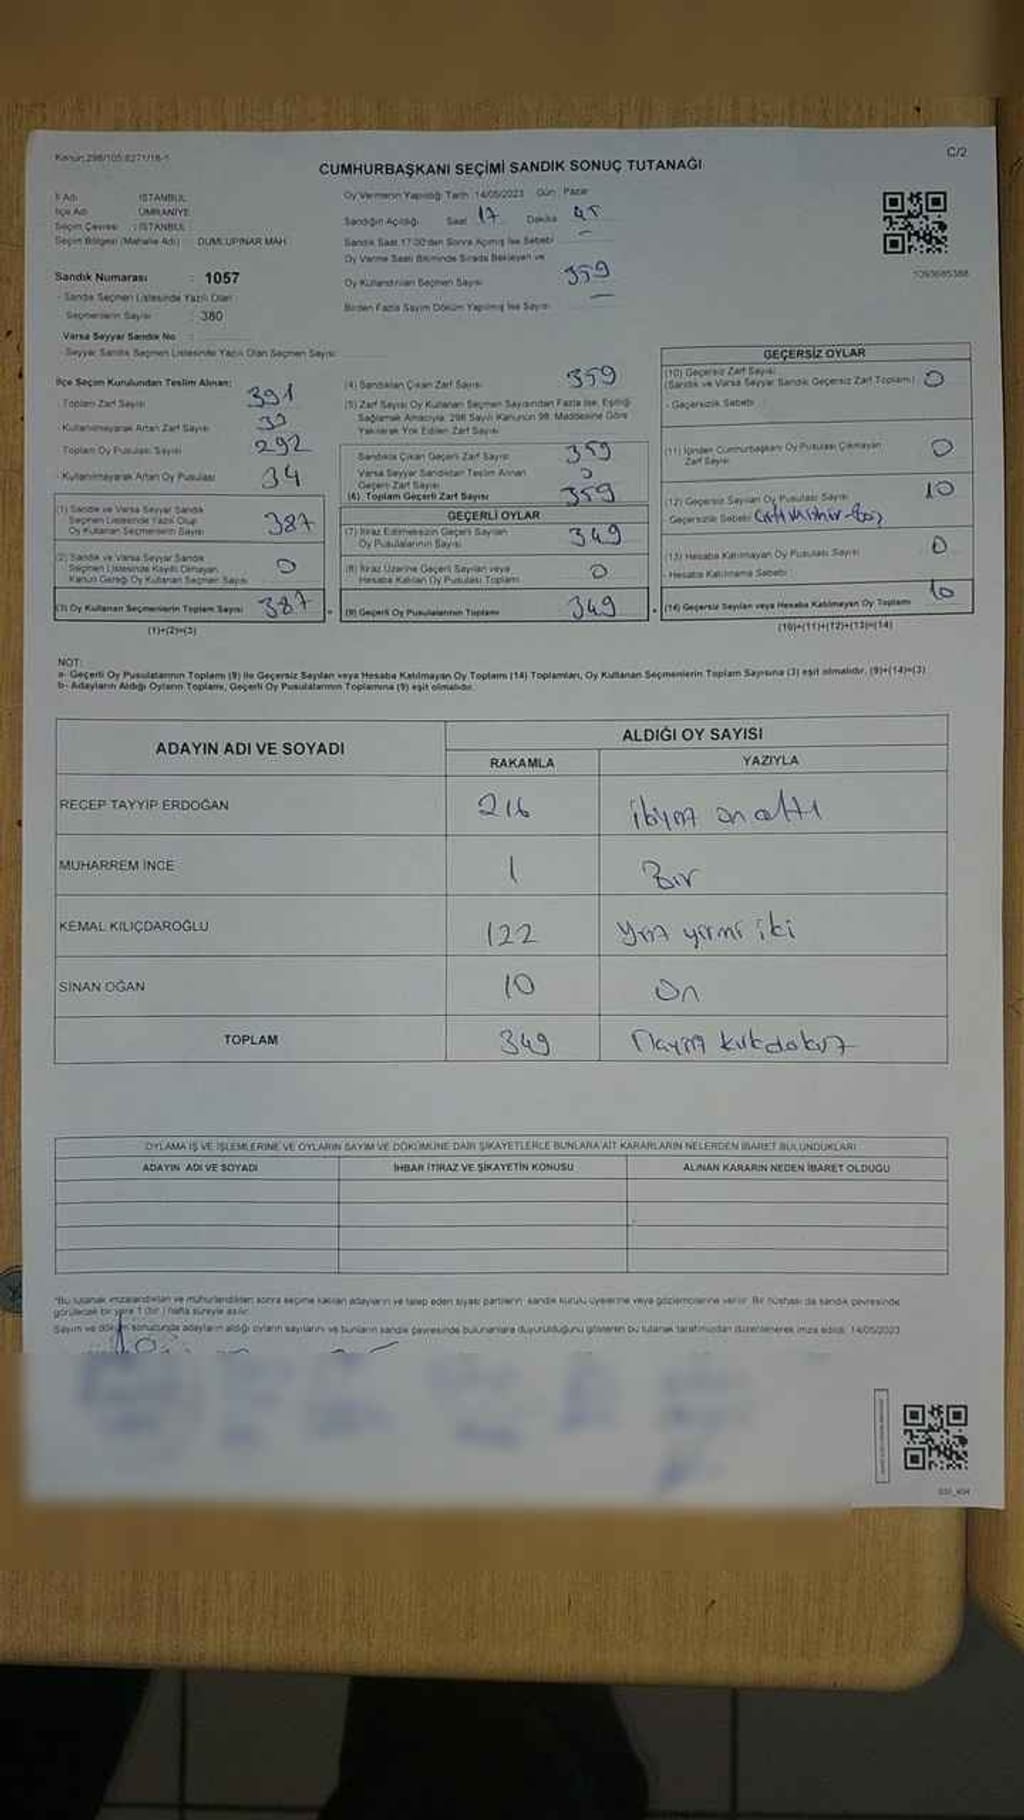 Kanun:298/105;6271/18-1
C/2
CUMHURBAŞKANI SEÇİMİ SANDIK SONUÇ TUTANAĞI
İl Adı : İSTANBUL
İlçe Adı : ÜMRANİYE
Seçim Çevresi : İSTANBUL
Seçim Bölgesi (Mahalle Adı) : DUMLUPINAR MAH.
Oy Vermenin Yapıldığı Tarih: 14/05/2023 Gün: Pazar
Sandığın Açıldığı Saat 17 Dakika 45
Sandık Saat 17:00'den Sonra Açılmış İse Sebebi
Oy Verme Saati Bitiminde Sırada Bekleyen ve
Oy Kullandırılan Seçmen Sayısı 359
Birden Fazla Sayım Döküm Yapılmış İse Sayısı —
Sandık Numarası : 1057
- Sandık Seçmen Listesinde Yazılı Olan
Seçmenlerin Sayısı : 380
Varsa Seyyar Sandık No :
- Seyyar Sandık Seçmen Listesinde Yazılı Olan Seçmen Sayısı:
İlçe Seçim Kurulundan Teslim Alınan:
- Toplam Zarf Sayısı 391
- Kullanılmayarak Artan Zarf Sayısı 33
Toplam Oy Pusulası Sayısı 292
- Kullanılmayarak Artan Oy Pusulası 34
(1) Sandık ve Varsa Seyyar Sandık
Seçmen Listesinde Yazılı Olup
Oy Kullanan Seçmenlerin Sayısı 387
(2) Sandık ve Varsa Seyyar Sandık
Seçmen Listesinde Kayıtlı Olmayan,
Kanun Gereği Oy Kullanan Seçmen Sayısı 0
(3) Oy Kullanan Seçmenlerin Toplam Sayısı 387
(1)+(2)=(3)
(4) Sandıktan Çıkan Zarf Sayısı 359
(5) Zarf Sayısı Oy Kullanan Seçmen Sayısından Fazla ise, Eşitliği
Sağlamak Amacıyla, 298 Sayılı Kanunun 98. Maddesine Göre
Yakılarak Yok Edilen Zarf Sayısı
Sandıkta Çıkan Geçerli Zarf Sayısı 359
Varsa Seyyar Sandıktan Teslim Alınan
Geçerli Zarf Sayısı 0
(6) Toplam Geçerli Zarf Sayısı 359
GEÇERLİ OYLAR
(7) İtiraz Edilmeksizin Geçerli Sayılan
Oy Pusulalarının Sayısı 349
(8) İtiraz Üzerine Geçerli Sayılan veya
Hesaba Katılan Oy Pusulası Toplamı 0
(9) Geçerli Oy Pusulalarının Toplamı 349
GEÇERSİZ OYLAR
(10) Geçersiz Zarf Sayısı
(Sandık ve Varsa Seyyar Sandık Geçersiz Zarf Toplamı) 0
- Geçersizlik Sebebi
(11) İçinden Cumhurbaşkanı Oy Pusulası Çıkmayan
Zarf Sayısı 0
(12) Geçersiz Sayılan Oy Pusulası Sayısı 10
Geçersizlik Sebebi
(13) Hesaba Katılmayan Oy Pusulası Sayısı 0
- Hesaba Katılmama Sebebi
(14) Geçersiz Sayılan veya Hesaba Katılmayan Oy Toplamı 10
(10)+(11)+(12)+(13)=(14)
NOT:
a- Geçerli Oy Pusulalarının Toplamı (9) ile Geçersiz Sayılan veya Hesaba Katılmayan Oy Toplamı (14) Toplamları, Oy Kullanan Seçmenlerin Toplam Sayısına (3) eşit olmalıdır. (9)+(14)=(3)
b- Adayların Aldığı Oyların Toplamı, Geçerli Oy Pusulalarının Toplamına (9) eşit olmalıdır.
ADAYIN ADI VE SOYADI
ALDIĞI OY SAYISI
RAKAMLA YAZIYLA
RECEP TAYYİP ERDOĞAN 216 ikiyüz on altı
MUHARREM İNCE 1 Bir
KEMAL KILIÇDAROĞLU 122 yüz yirmi iki
SİNAN OĞAN 10 On
TOPLAM 349
OYLAMA İŞ VE İŞLEMLERİNE VE OYLARIN SAYIM VE DÖKÜMÜNE DAİR ŞİKAYETLERLE BUNLARA AİT KARARLARIN NELERDEN İBARET BULUNDUKLARI
ADAYIN ADI VE SOYADI İHBAR İTİRAZ VE ŞİKAYETİN KONUSU ALINAN KARARIN NEDEN İBARET OLDUĞU
*Bu tutanak imzalandıktan ve mühürlendikten sonra seçime katılan adayların ve talep eden siyasi partilerin sandık kurulu üyelerine veya gözlemcilerine verilir. Bir nüshası da sandık çevresinde
görülecek bir yere 1 (bir) hafta süreyle asılır.
Sayım ve döküm sonucunda adayların aldığı oyların sayılarını ve bunların sandık çevresinde bulunanlara duyurulduğunu gösteren bu tutanak tarafımızdan düzenlenerek imza edildi. 14/05/2023